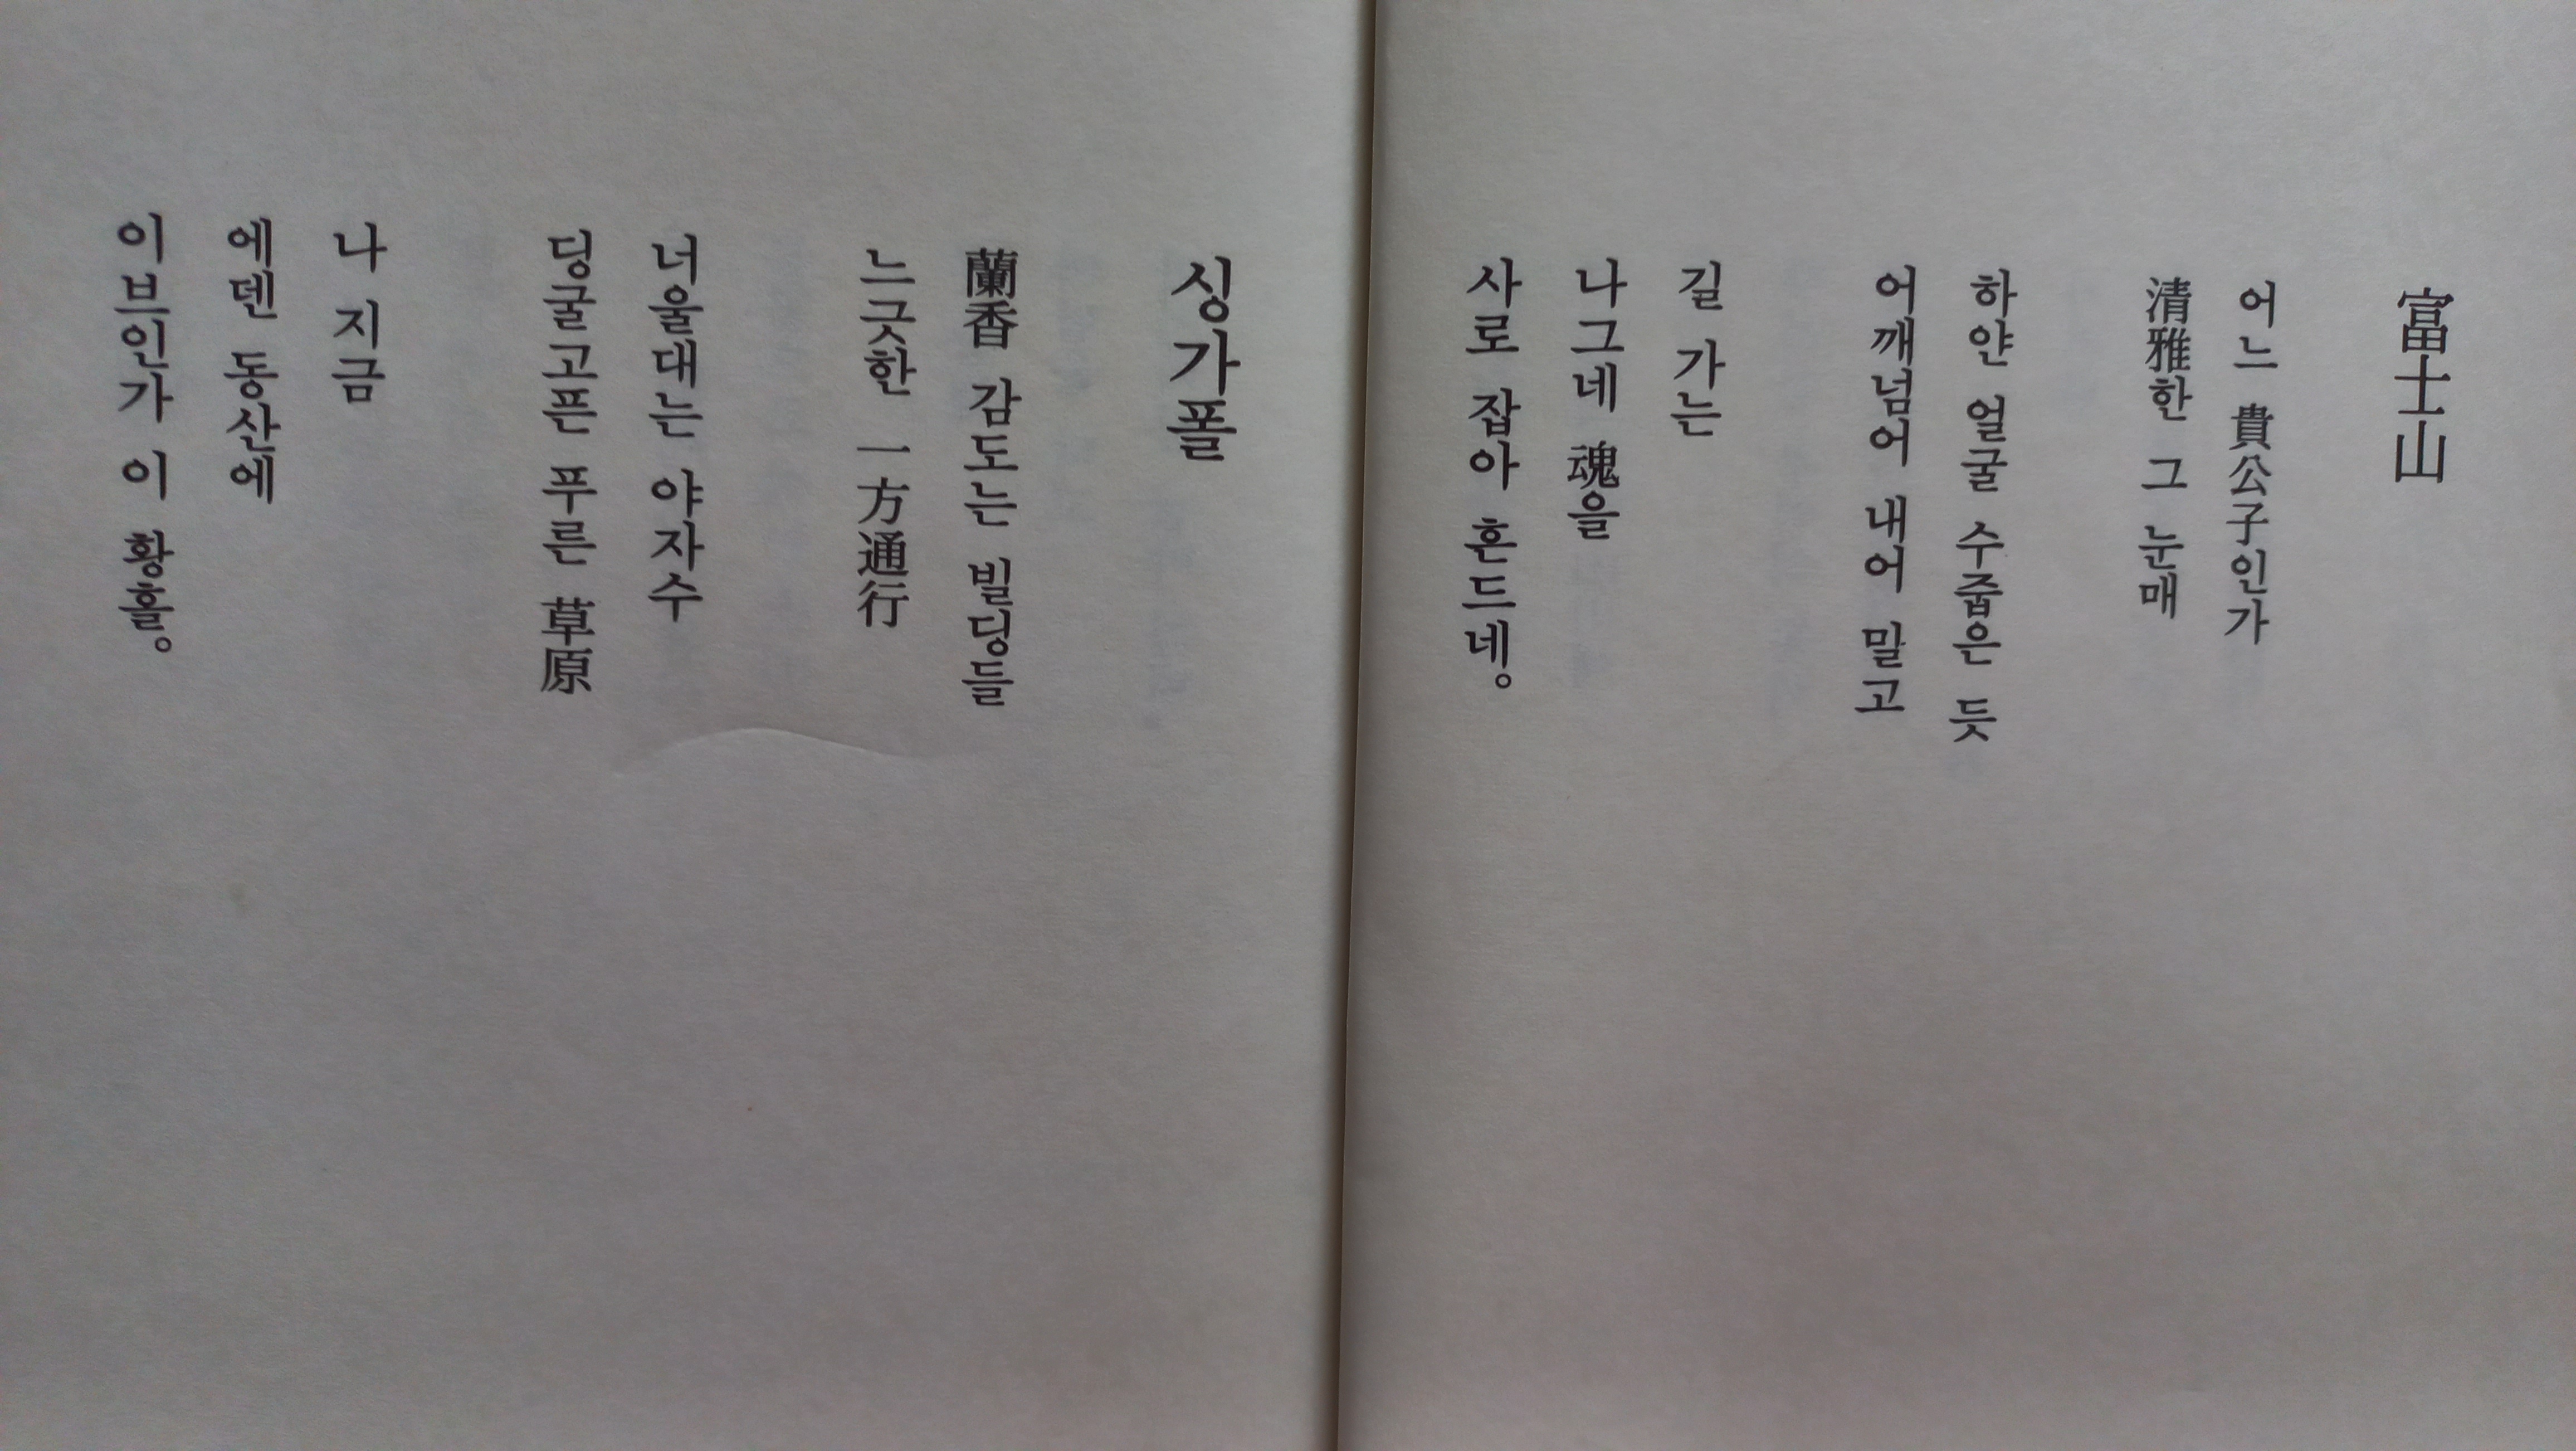 富士山
어느 貴公子인가
清雅한 그 눈매
하얀 얼굴 수줍은 듯
어깨넘어 내어 말고
길 가는
나그네 魂을
사로 잡아 흔드네。
싱가폴
蘭香 감도는 빌딩들
느긋한 一方通行
너울대는 야자수
딩굴고픈 푸른 草原
나 지금
에덴 동산에
이브인가 이 황홀。